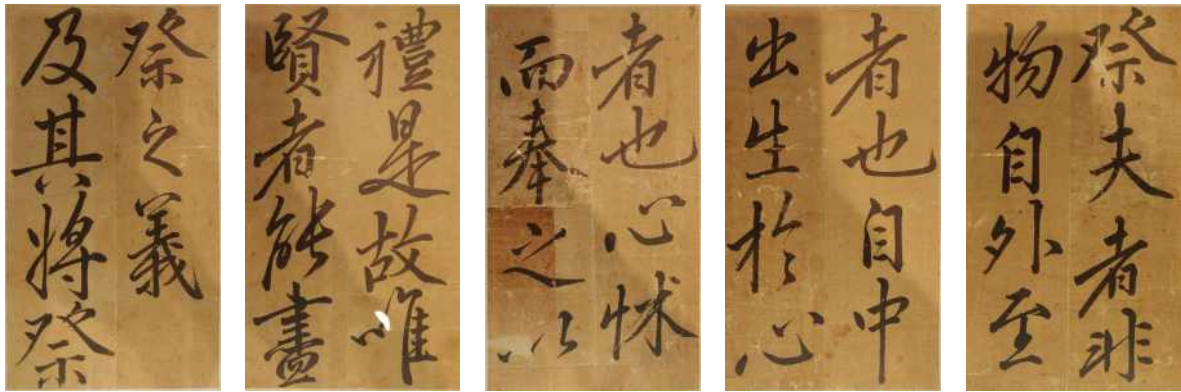 祭夫者非
物自外至
者也自中
出生於心
者也心怵
而奉之以
禮是故唯
賢者能盡
祭之義
及其將祭